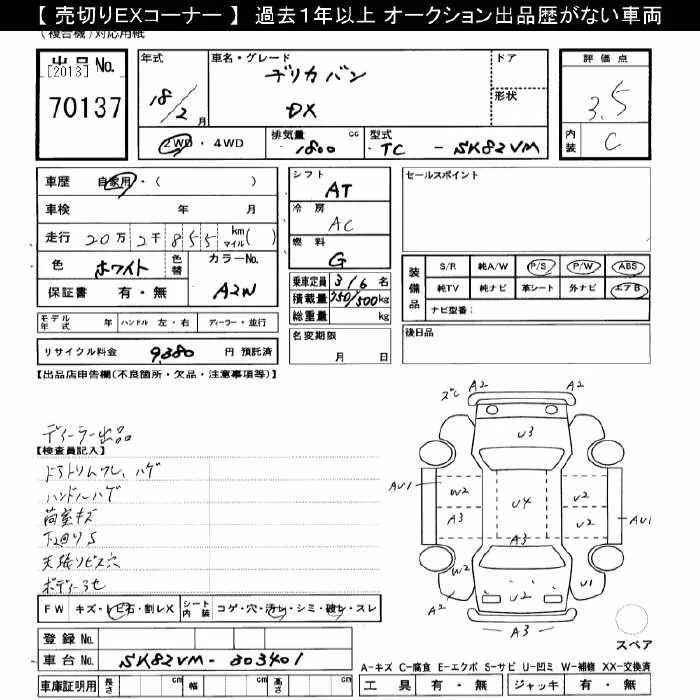 【 売切りEXコーナー 】 過去1年以上 オークション出品歴がない車両
(複合機)対応用紙
出品 No.
[2013]
70137
年式
18/2月
車名・グレード
デリカバン
DX
ドア
形状
評価点
3.5
内装
C
2WD ・ 4WD
排気量
1800 cc
型式
TC - SK82VM
車歴 自家用・( )
車検 年 月
走行 20万 2千 8 5 5 km マイル( )
色 ホワイト 色替
カラーNo.
A2W
保証書 有・無
シフト
AT
冷房
AC
燃料
G
乗車定員 3/6 名
積載量 750/500 kg
総重量 kg
セールスポイント
装備品
S/R 純A/W P/S P/W ABS
純TV 純ナビ 革シート 外ナビ エアB
ナビ型番:
モデル年式 年 ハンドル 左・右 ディーラー・並行
リサイクル料金 9,380 円 預託済
名変期限
月 日
後日品
【出品店申告欄(不良箇所・欠品・注意事項等)】
ディーラー出品
【検査員記入】
ハンドルハゲ
荷室キズ
下回りS
天張りビス穴
A2 A2
U3
AU1 W2 U4 U2
A3 U2 AU1
A3
W2
A2 U2 U1
A3
スペア
FW キズ・トビ石・割レX
シート内装 コゲ・穴・汚レ・シミ・破レ・スレ
登録 No.
車台 No. SK82VM-303401
車庫証明用 長さ cm 幅 cm 高さ cm
A-キズ C-腐食 E-エクボ S-サビ U-凹ミ W-補修 XX-交換済
工具 有・無 ジャッキ 有・無